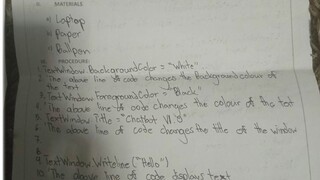 MATERIALS
Laptop
Paper
Ballpen
PROCEDURE
1. TextWindow.BackgroundColor = "White"
2. The above line of code changes the Background colour of
the text
3. TextWindow.ForegroundColor = "Black"
4. The above line of code changes the colour of the text
5. TextWindow.Title = "Chatbot V1.0"
6. This above line of code changes the title of the window
7.
8.
9. TextWindow.Writeline ("Hello")
10. The above line of code displays text